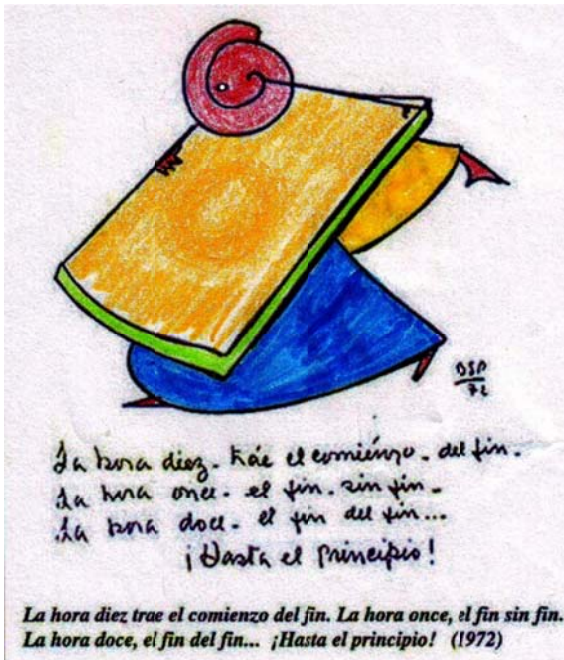 BSP
72
La hora diez - trae el comienzo - del fin.
La hora once - el fin - sin fin -
La hora doce - el fin del fin...
¡Hasta el Principio!
La hora diez trae el comienzo del fin. La hora once, el fin sin fin.
La hora doce, el fin del fin... ¡Hasta el principio! (1972)